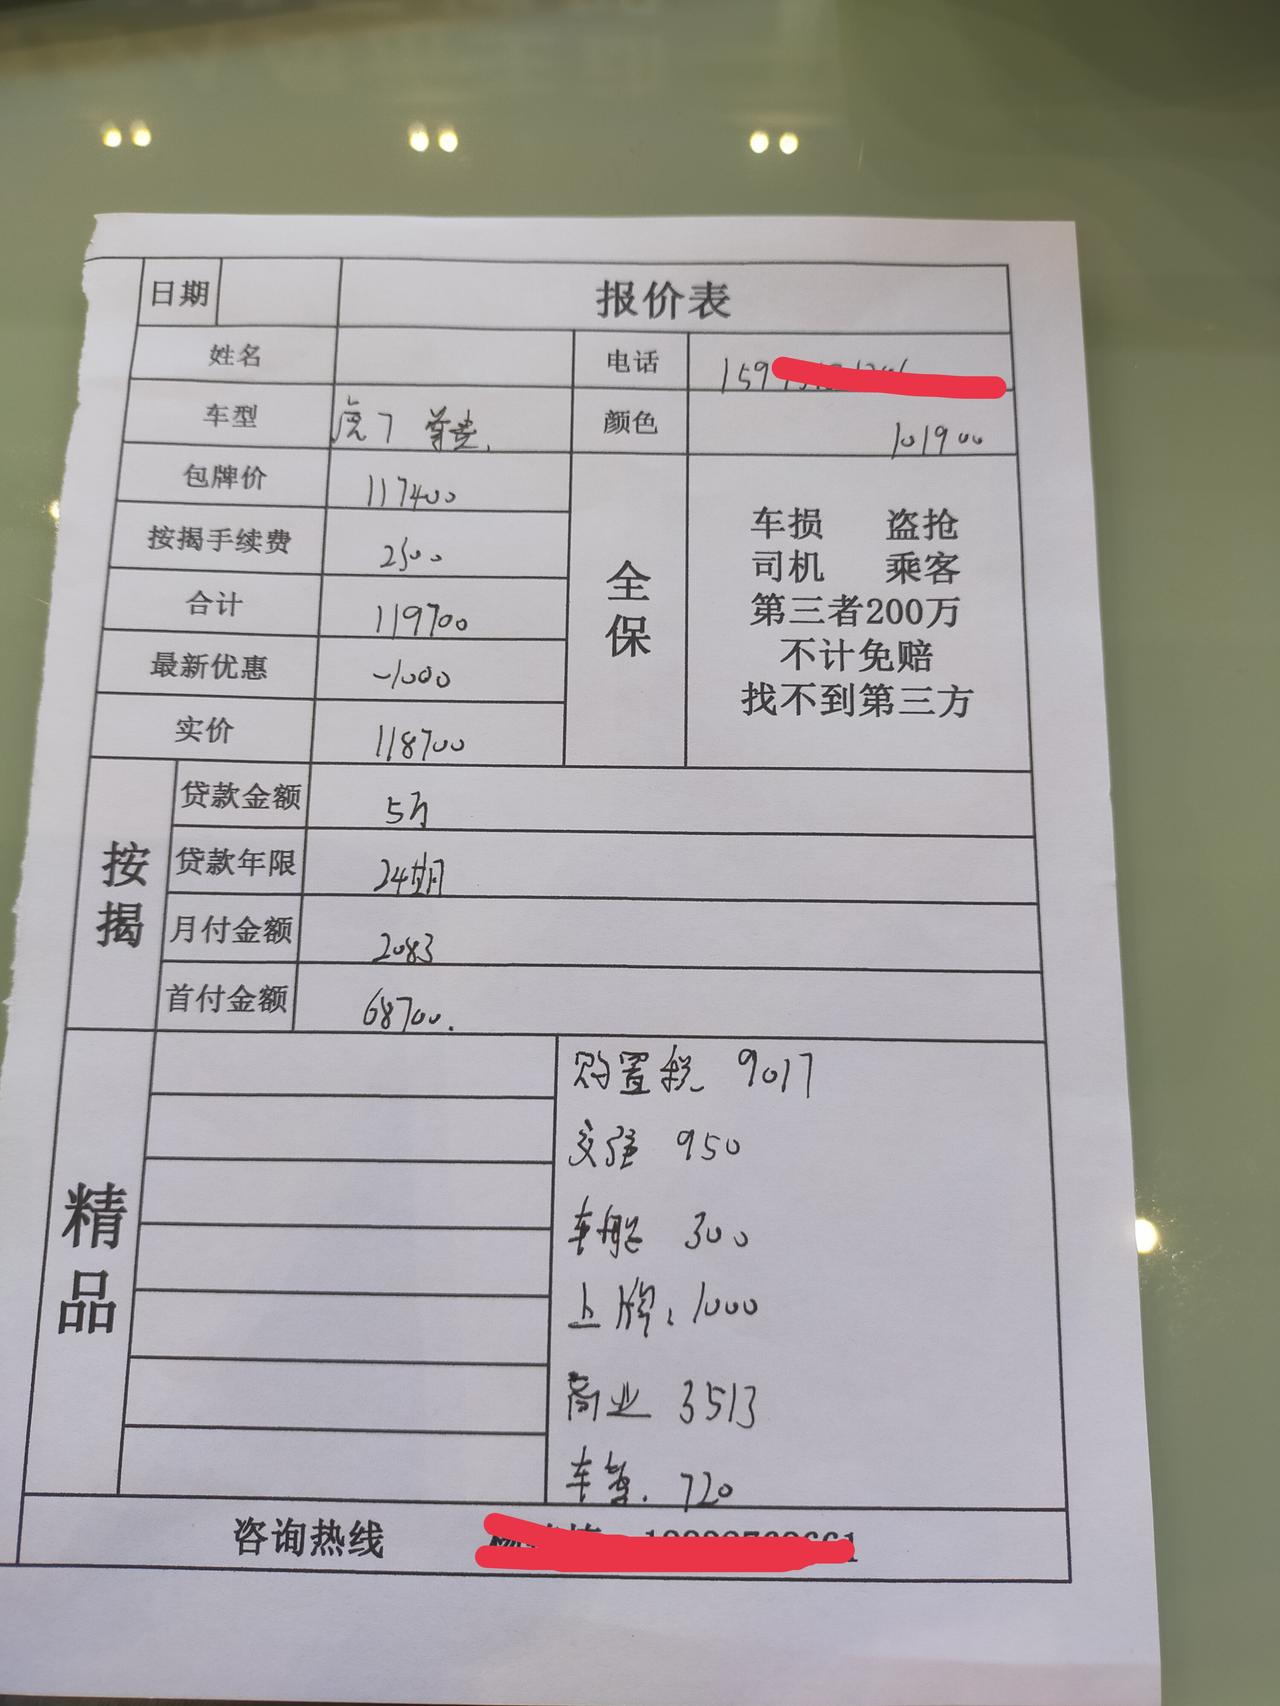 日期 报价表
姓名 电话 159
车型 虎7 尊贵. 颜色 101900
包牌价 117400
按揭手续费 2300
合计 119700
最新优惠 -1000
实价 118700
全保
车损 盗抢
司机 乘客
第三者200万
不计免赔
找不到第三方
按揭
贷款金额 5万
贷款年限 24期
月付金额 2083
首付金额 68700.
精品
购置税 9017
交强 950
车船 300
上牌: 1000
商业 3513
720
咨询热线